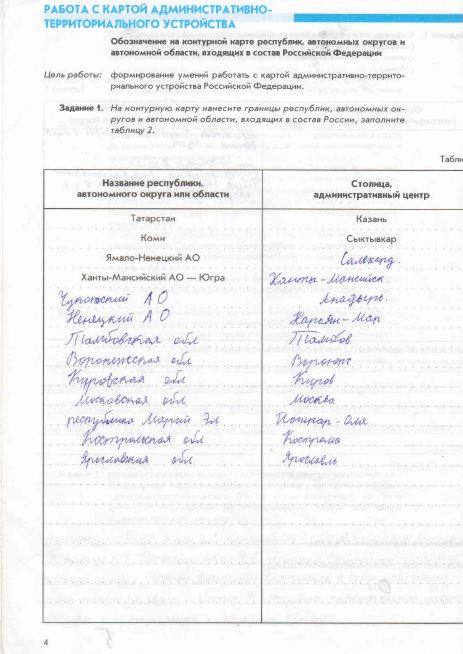 РАБОТА С КАРТОЙ АДМИНИСТРАТИВНО-
ТЕРРИТОРИАЛЬНОГО УСТРОЙСТВА
Обозначение на контурной карте республик, автономных округов и
автономной области, входящих в состав Российской Федерации
Цель работы: формирование умений работать с картой административно-террито-
риального устройства Российской Федерации.
Задание 1. На контурную карту нанесите границы республик, автономных ок-
ругов и автономной области, входящих в состав России, заполните
таблицу 2.
Табли
Название республики, автономного округа или области Столица, административный центр
Татарстан Казань
Коми Сыктывкар
Ямало-Ненецкий АО Салехард.
Ханты-Мансийский АО — Югра Ханты-Мансийск
Чукотский АО Анадырь.
Ненецкий АО Нарьян-Мар
Тамбовская обл Тамбов
Воронежская обл Воронеж
Кировская обл Киров
Московская обл Москва
республика Марий Эл Йошкар-Ола
Костромская обл Кострома
Ярославская обл Ярославль
4